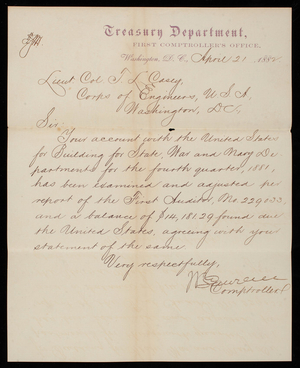 Treasury Department,
FIRST COMPTROLLER'S OFFICE,
Washington, D. C., April 21 1882
Lieut Col. T. L. Casey,
Corps of Engineers, U.S.A.
Washington, D.C.
Sir:
Your account with the United States
for Building for State, War and Navy De-
partments for the fourth quarter, 1881,
has been examined and adjusted per
report of the First Auditor, No. 229033,
and a balance of $14,181.29 found due
the United States, agreeing with your
statement of the same.
Very respectfully,
Comptroller